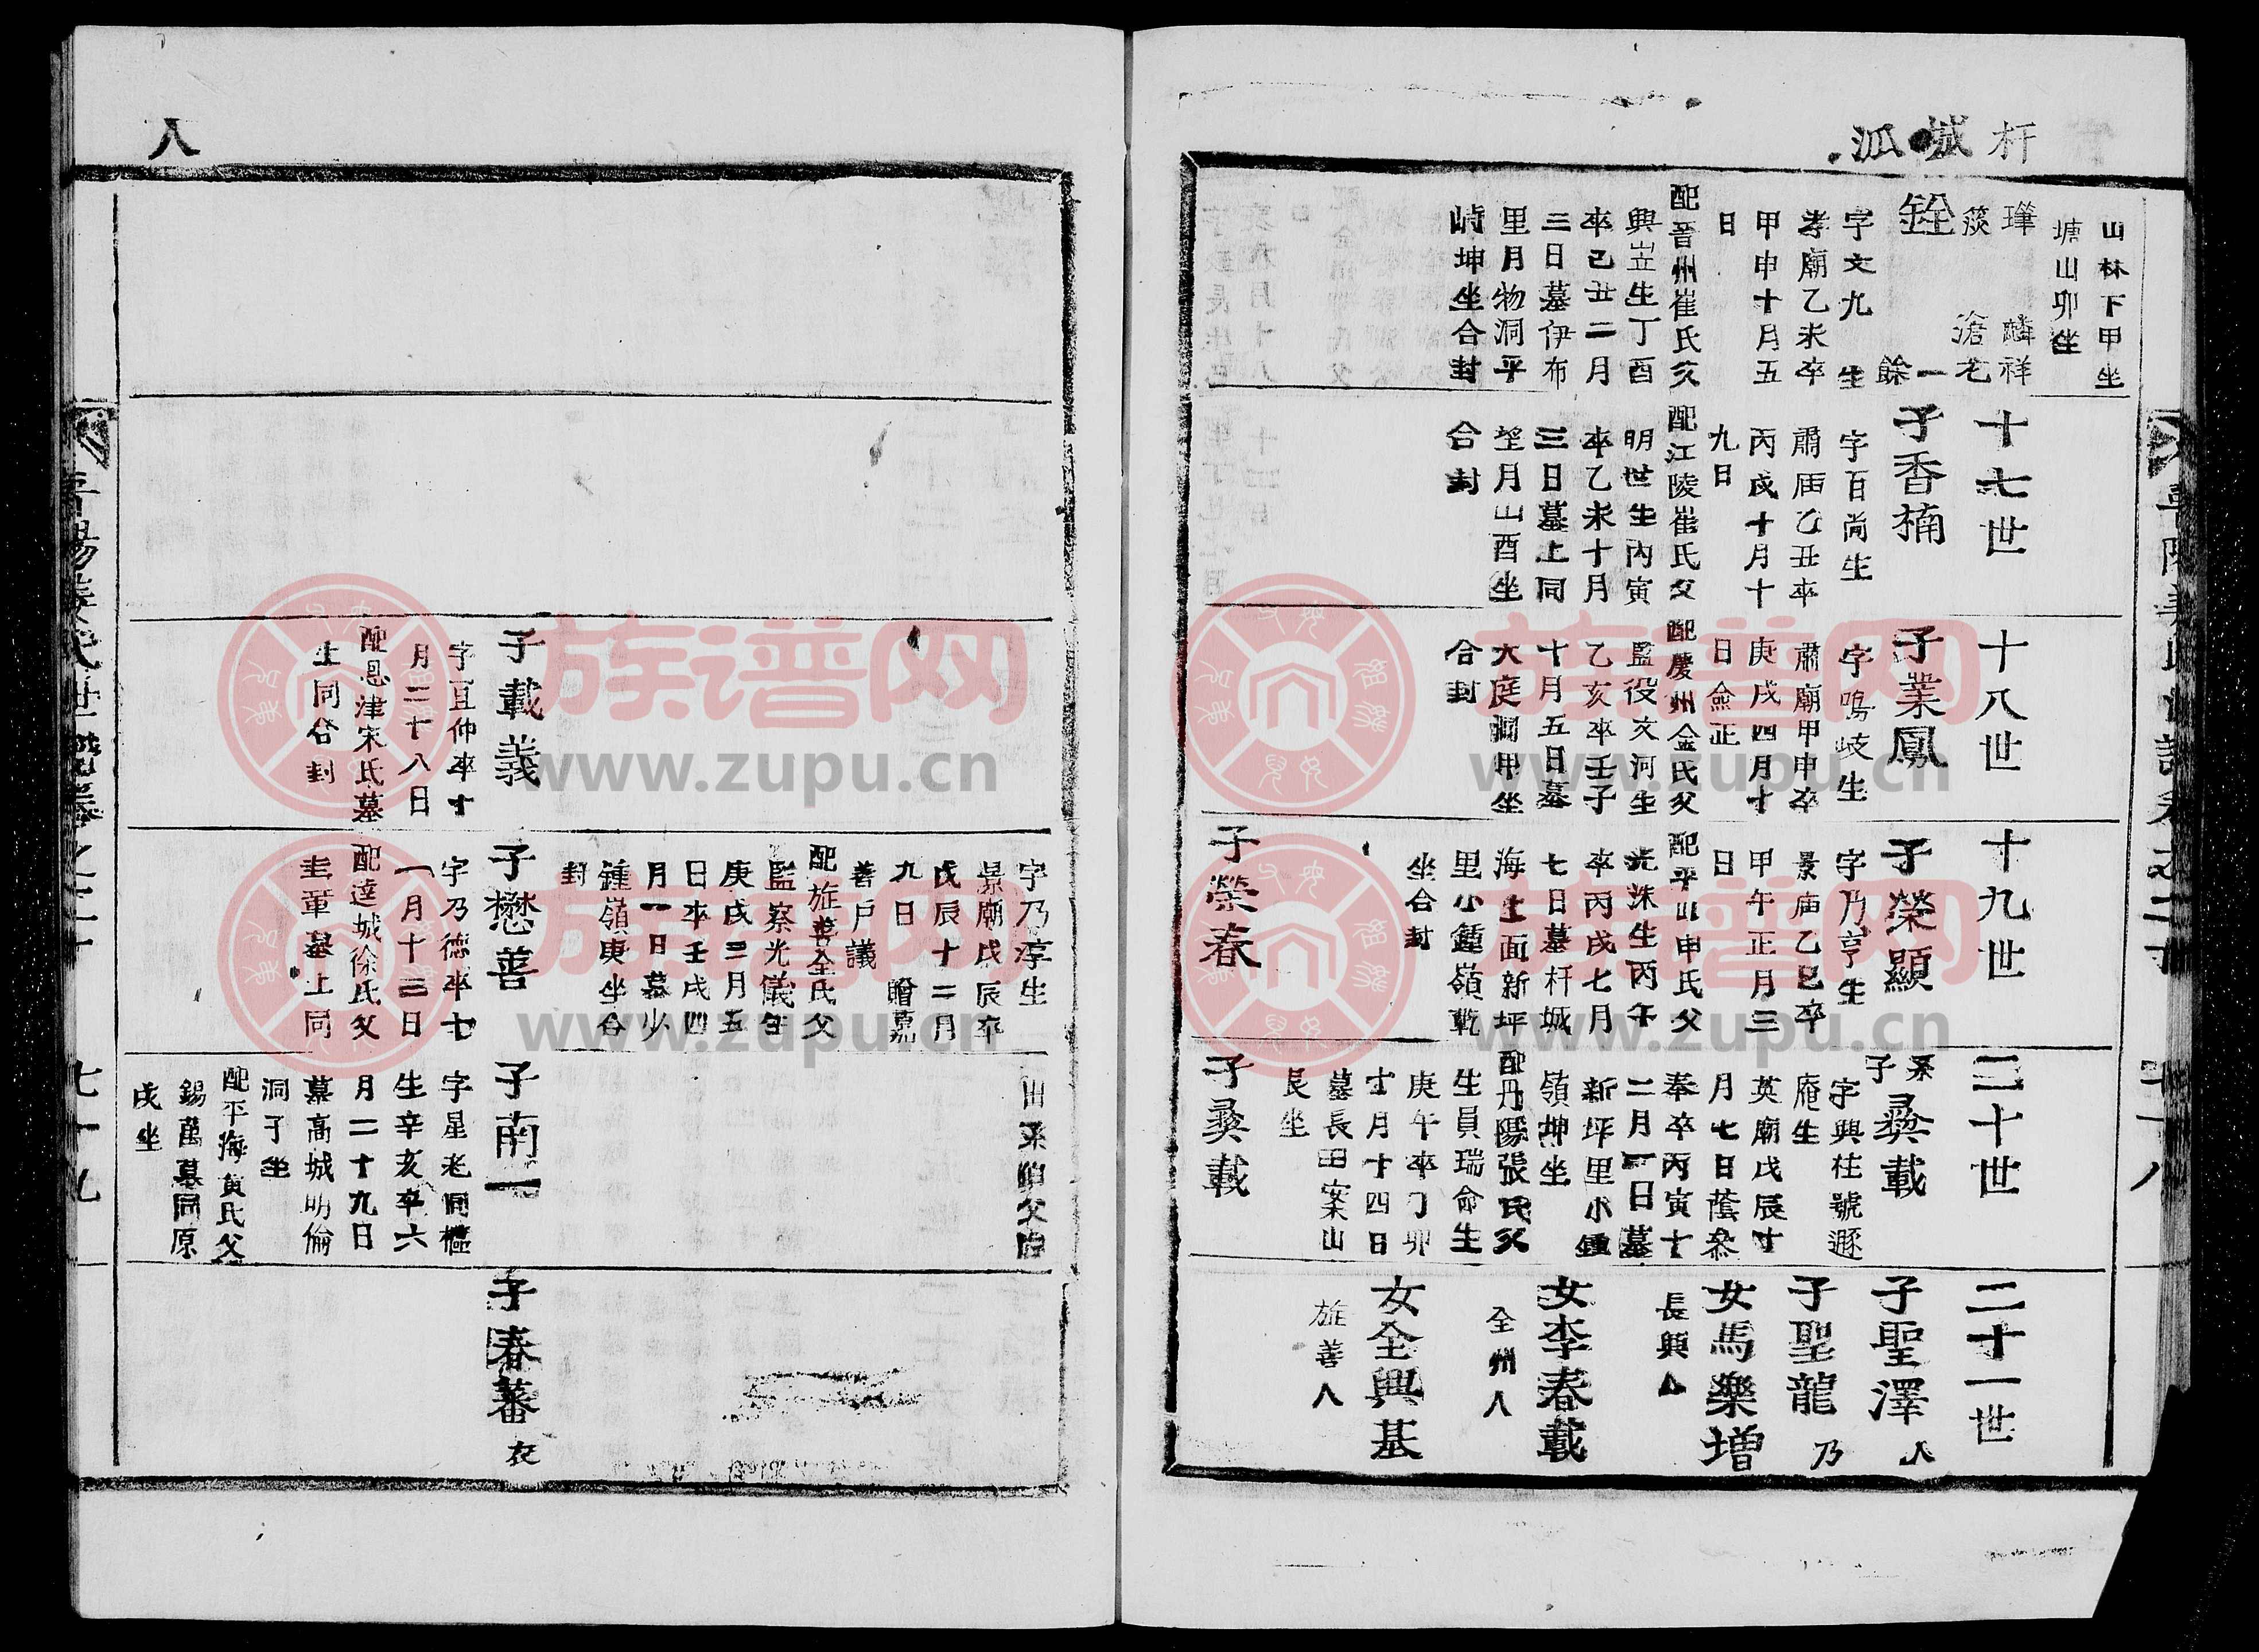 杆城派
山林下甲坐
塘山卯坐
瑾 麟祥
滄老
銓 一
餘
字文九 生
孝廟乙未卒
甲申十月五
日
配晉州崔氏父
興岦生丁酉
卒己丑二月
三日墓伊布
里月物洞平
峙坤坐合封
十七世
子香楠
字百尚生
肅庙乙丑卒
丙戌十月十
九日
配江陵崔氏父
明世生丙寅
卒乙未十月
三日墓上同
望月山酉坐
合封
十八世
子業鳳
字鳴岐生
肅廟甲申卒
庚戌四月十
日僉正
配慶州金氏父
監役文河生
乙亥卒壬子
十月五日墓
大庭洞甲坐
合封
十九世
子榮顯
字乃亨生
景庙乙巳卒
甲午正月三
日
配平山申氏父
光洙生丙午
卒丙戌七月
七日墓杆城
海上面新坪
里小鍾嶺乾
坐合封
子榮春
二十世
系
子彛載
字興柱號遯
庵生
英廟戊辰十
月七日蔭參
奉卒丙寅十
二月一日墓
新坪里小鍾
嶺坤坐
配丹陽張氏父
生員瑞命生
庚午卒丁卯
十月十四日
墓長田案山
艮坐
子彛載
二十一世
子聖澤 人
子聖龍 乃
女馬樂增
長興人
女李春載
全州人
女全興基
旌善人
七十八
八
字乃淳生
景廟戊辰卒
戊辰十二月
九日 贈嘉
善戶議
配旌善全氏父
監察光儀生
庚戌三月五
日卒壬戌四
月一日墓少
鍾嶺庚坐合
封
出系伯父后
子載義
字直仲卒十
月二十八日
配恩津宋氏墓
生同合封
子懋善
字乃德卒七
月十三日
配達城徐氏父
圭重墓上同
子南一
字星老同樞
生辛亥卒六
月二十九日
墓高城明倫
洞子坐
配平海黃氏父
錫萬墓同原
戌坐
子春蕃 衣
七十九
族谱网
www.zupu.cn
族谱网
www.zupu.cn
族谱网
www.zupu.cn
族谱网
www.zupu.cn